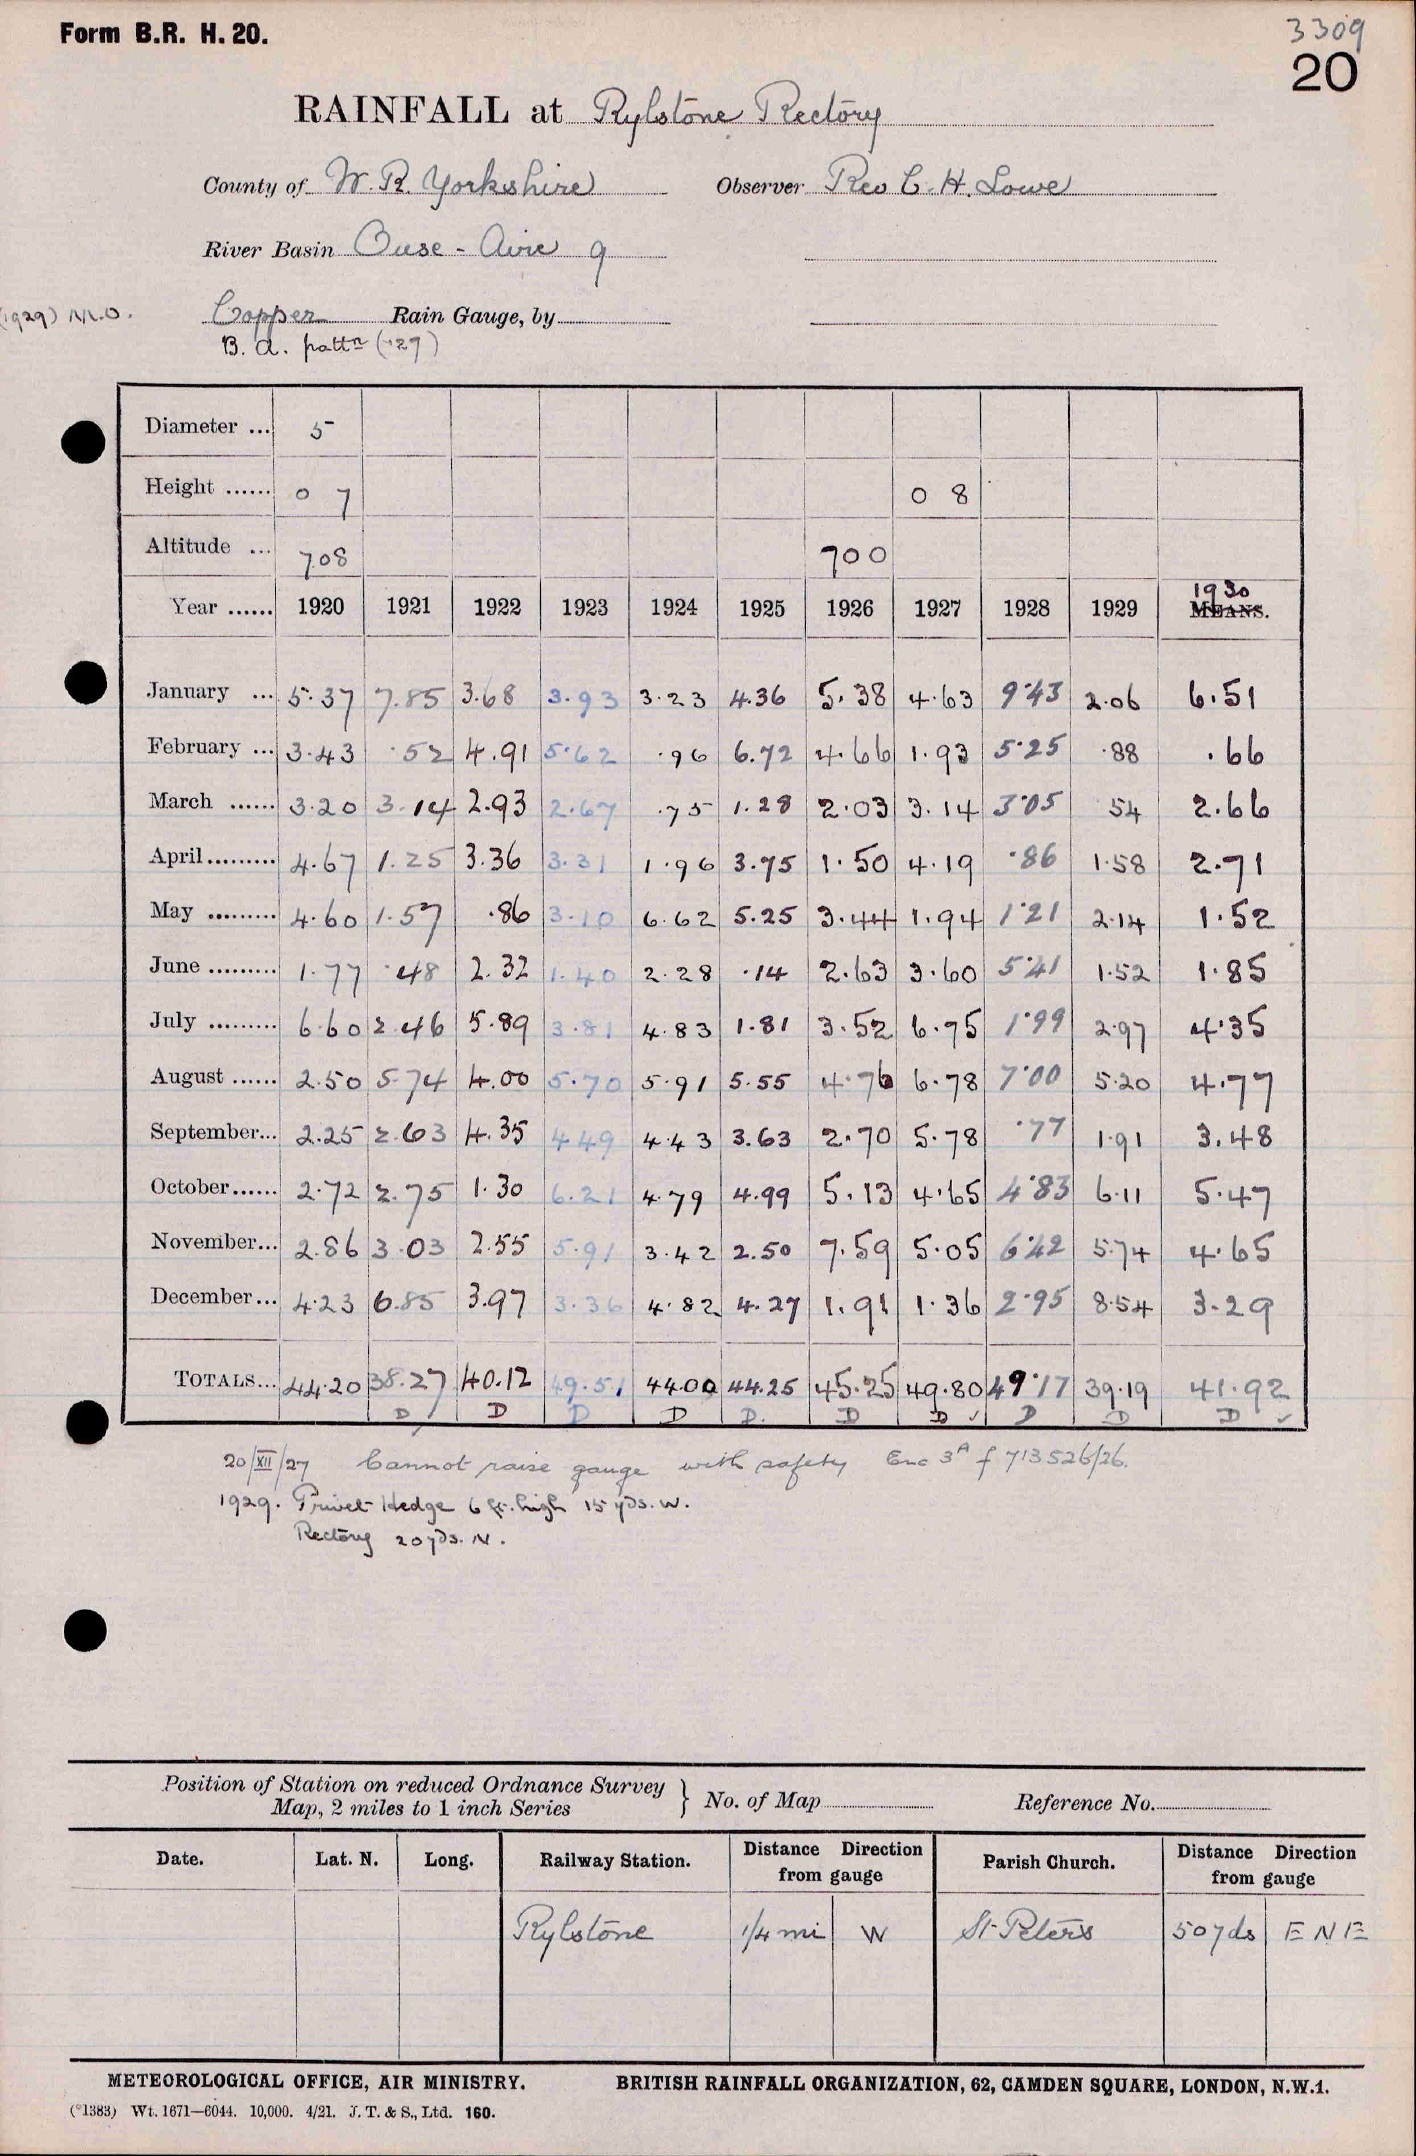 Form B.R. H. 20.
3309
20
RAINFALL at Rylstone Rectory
County of W. R. Yorkshire Observer Rev C. H. Lowe
River Basin Ouse - Aire 9
(1929) M.O. Copper Rain Gauge, by
B. A. pattn ('29)
Diameter ... 5
Height ...... 0 7 0 8
Altitude ... 708 700
1930
Year ...... 1920 1921 1922 1923 1924 1925 1926 1927 1928 1929 MEANS.
January ... 5.37 7.85 3.68 3.93 3.23 4.36 5.38 4.63 9.43 2.06 6.51
February ... 3.43 .52 4.91 5.62 .96 6.72 4.66 1.93 5.25 .88 .66
March ...... 3.20 3.14 2.93 2.67 .75 1.28 2.03 3.14 3.05 54 2.66
April ......... 4.67 1.25 3.36 3.31 1.96 3.75 1.50 4.19 .86 1.58 2.71
May ......... 4.60 1.57 .86 3.10 6.62 5.25 3.44 1.94 1.21 2.14 1.52
June ......... 1.77 .48 2.32 1.40 2.28 .14 2.63 3.60 5.41 1.52 1.85
July ......... 6.60 2.46 5.89 3.81 4.83 1.81 3.52 6.75 1.99 2.97 4.35
August ...... 2.50 5.74 4.00 5.70 5.91 5.55 4.76 6.78 7.00 5.20 4.77
September... 2.25 2.63 4.35 4.49 4.43 3.63 2.70 5.78 .77 1.91 3.48
October...... 2.72 2.75 1.30 6.21 4.79 4.99 5.13 4.65 4.83 6.11 5.47
November... 2.86 3.03 2.55 5.91 3.42 2.50 7.59 5.05 6.42 5.74 4.65
December... 4.23 6.85 3.97 3.36 4.82 4.27 1.91 1.36 2.95 8.54 3.29
TOTALS... 44.20 38.27 40.12 49.51 44.00 44.25 45.25 49.80 49.17 39.19 41.92
D D D D D. D D ✓ D D D ✓
20/XII/27 Cannot raise gauge with safety Enc 3A f 713526/26.
1929. Privet Hedge 6 ft. high 15 yds. W.
Rectory 20 yds. N.
Position of Station on reduced Ordnance Survey
Map, 2 miles to 1 inch Series } No. of Map Reference No.
Date. Lat. N. Long. Railway Station. Distance from gauge Direction Parish Church. Distance from gauge Direction
Rylstone 1/4 mi W St Peters 50 yds E N E
METEOROLOGICAL OFFICE, AIR MINISTRY. BRITISH RAINFALL ORGANIZATION, 62, CAMDEN SQUARE, LONDON, N.W.1.
(°1383) Wt. 1671—6044. 10,000. 4/21. J. T. & S., Ltd. 160.